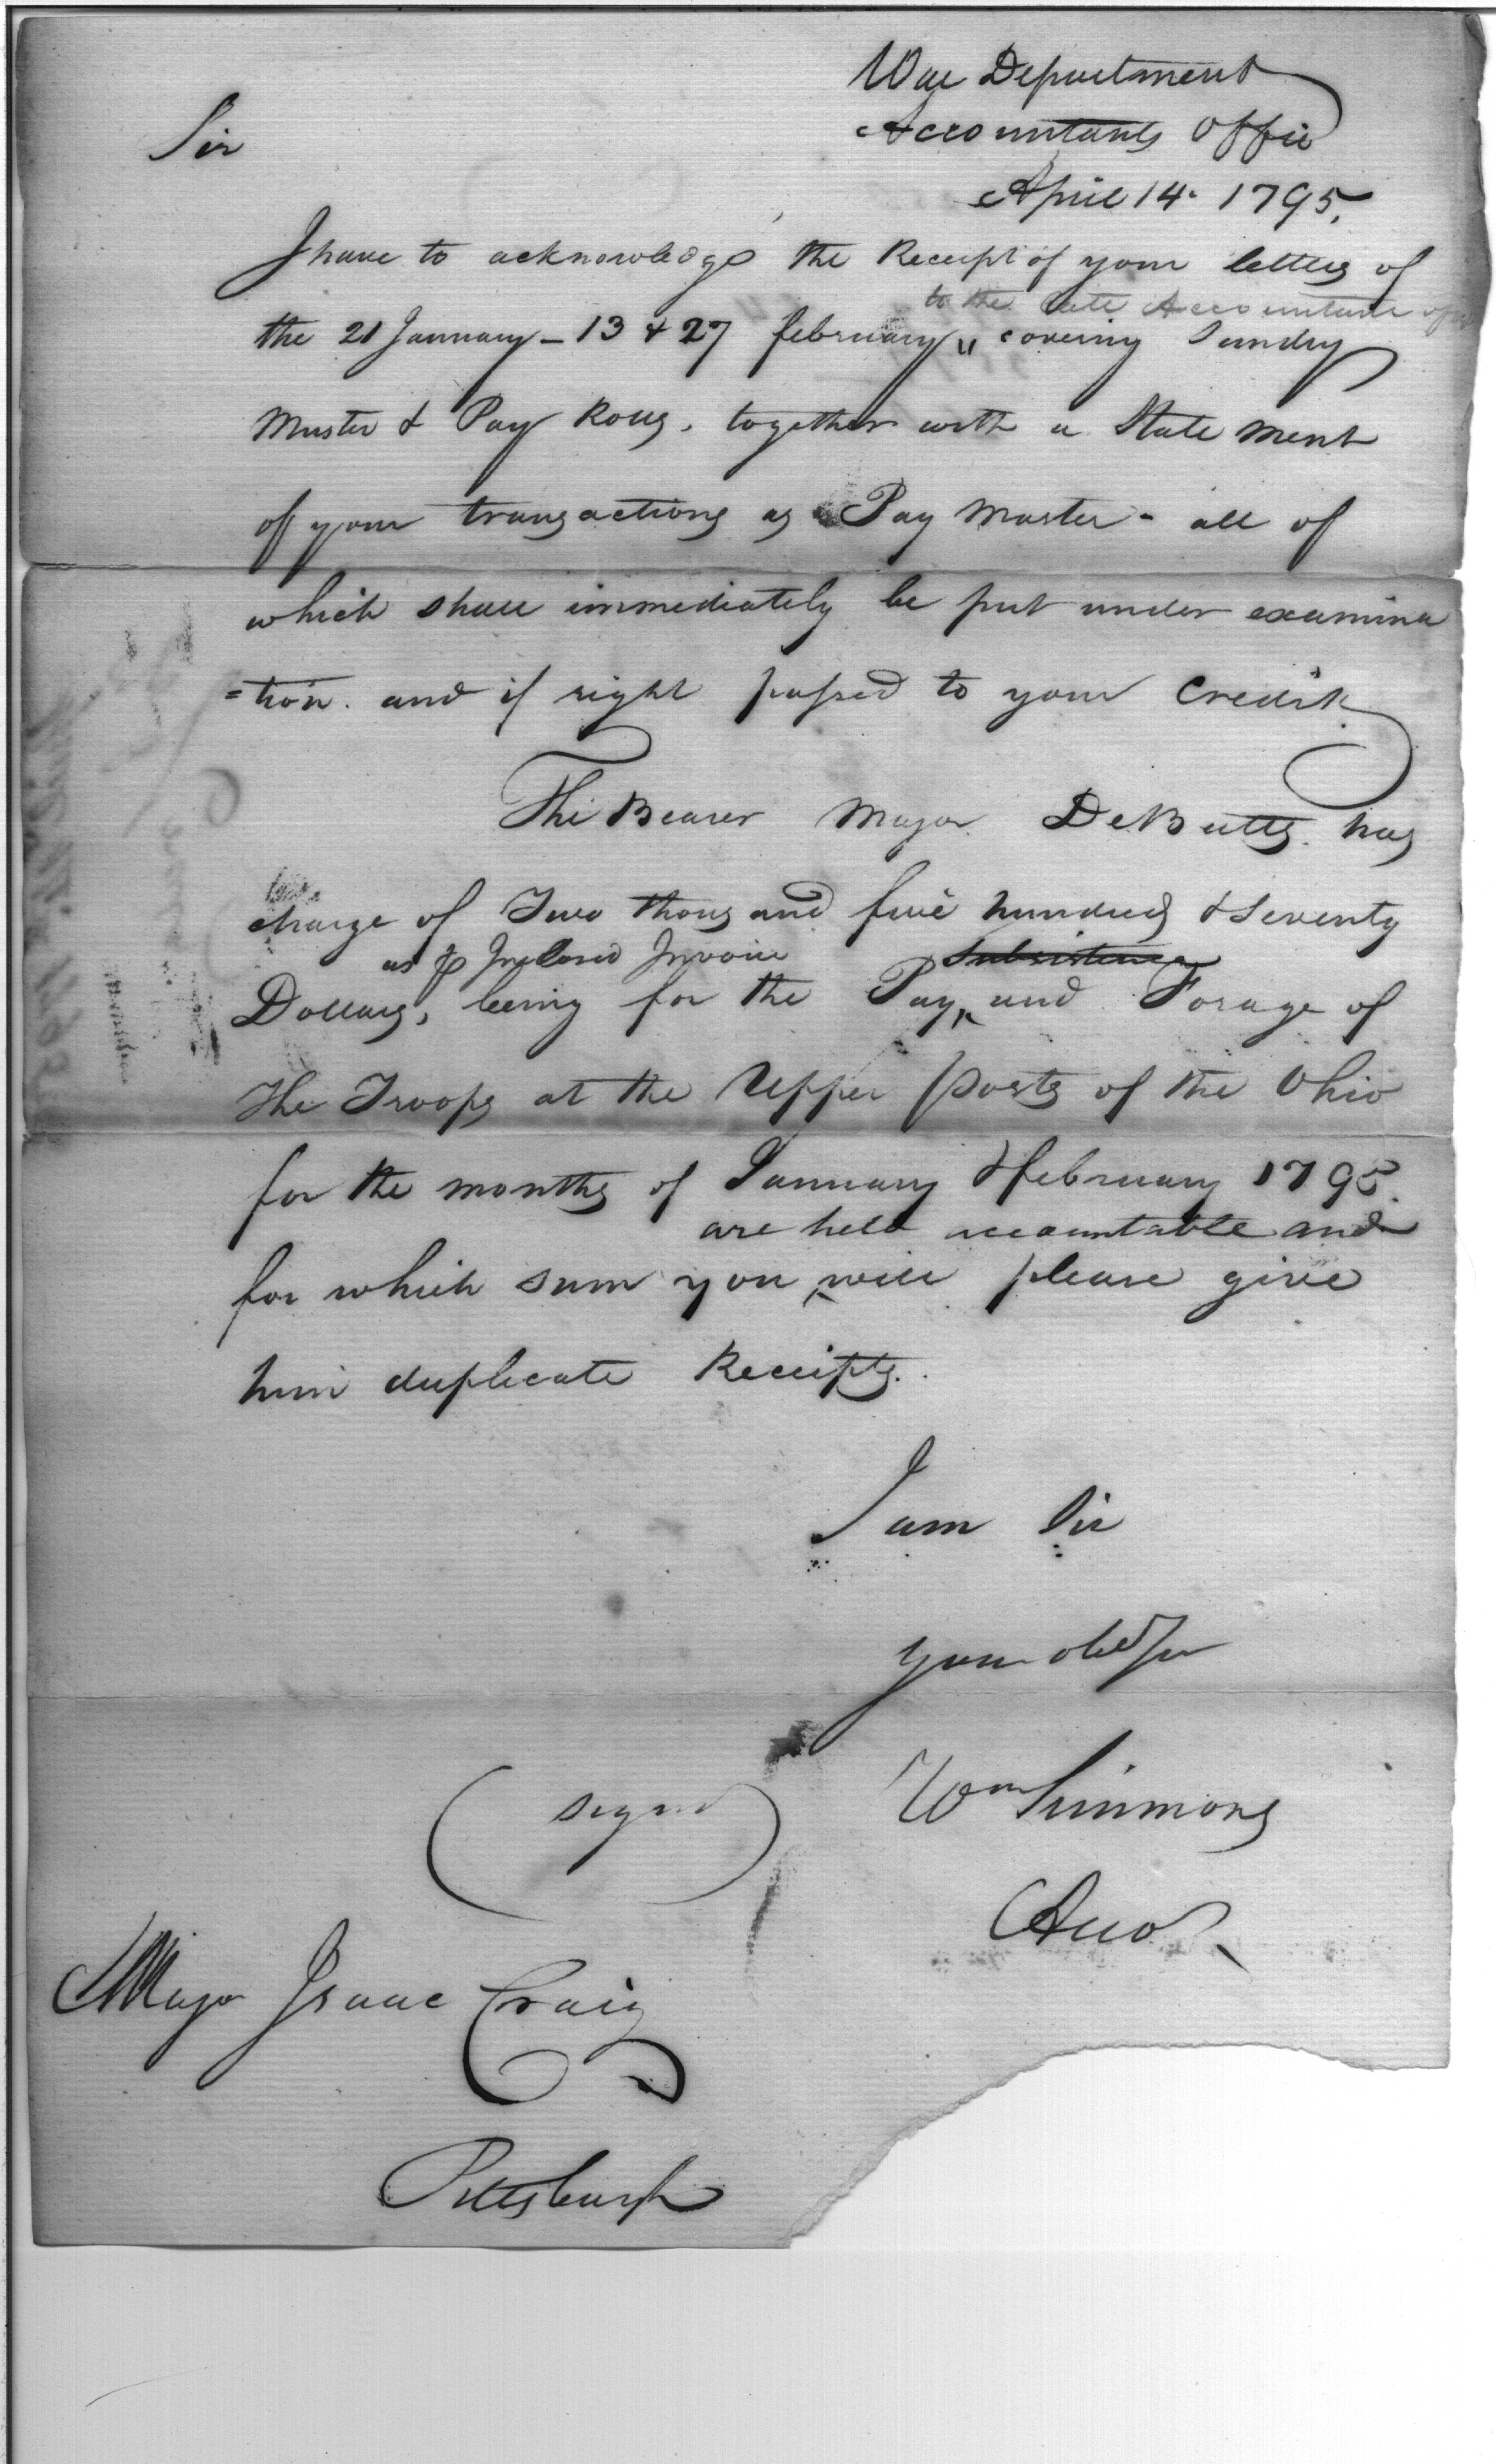 War Department
Accountants Office
Sir
April 14. 1795.
I have to acknowledge the Receipt of your letters of
to the late Accountant
the 21 January - 13 & 27 february, covering Sundry
Muster & Pay Rolls, together with a State ment
of your transactions as Pay Master - all of
which shall immediately be put under examina
=tion. and if right passed to your Credit
The Bearer Major DeButts has
charge of Two thousand five hundred & Seventy
as ⅌ Inclosed Invoice Subsistence
Dollars, being for the Pay, and Forage of
the Troops at the Upper posts of the Ohio
for the months of January & february 1795.
are held accountable and
for which sum you will please give
him duplicate Receipts.
I am Sir
your obed Ser
(signed) Wm Simmons
Acco
Major Isaac Craig
Pittsburgh